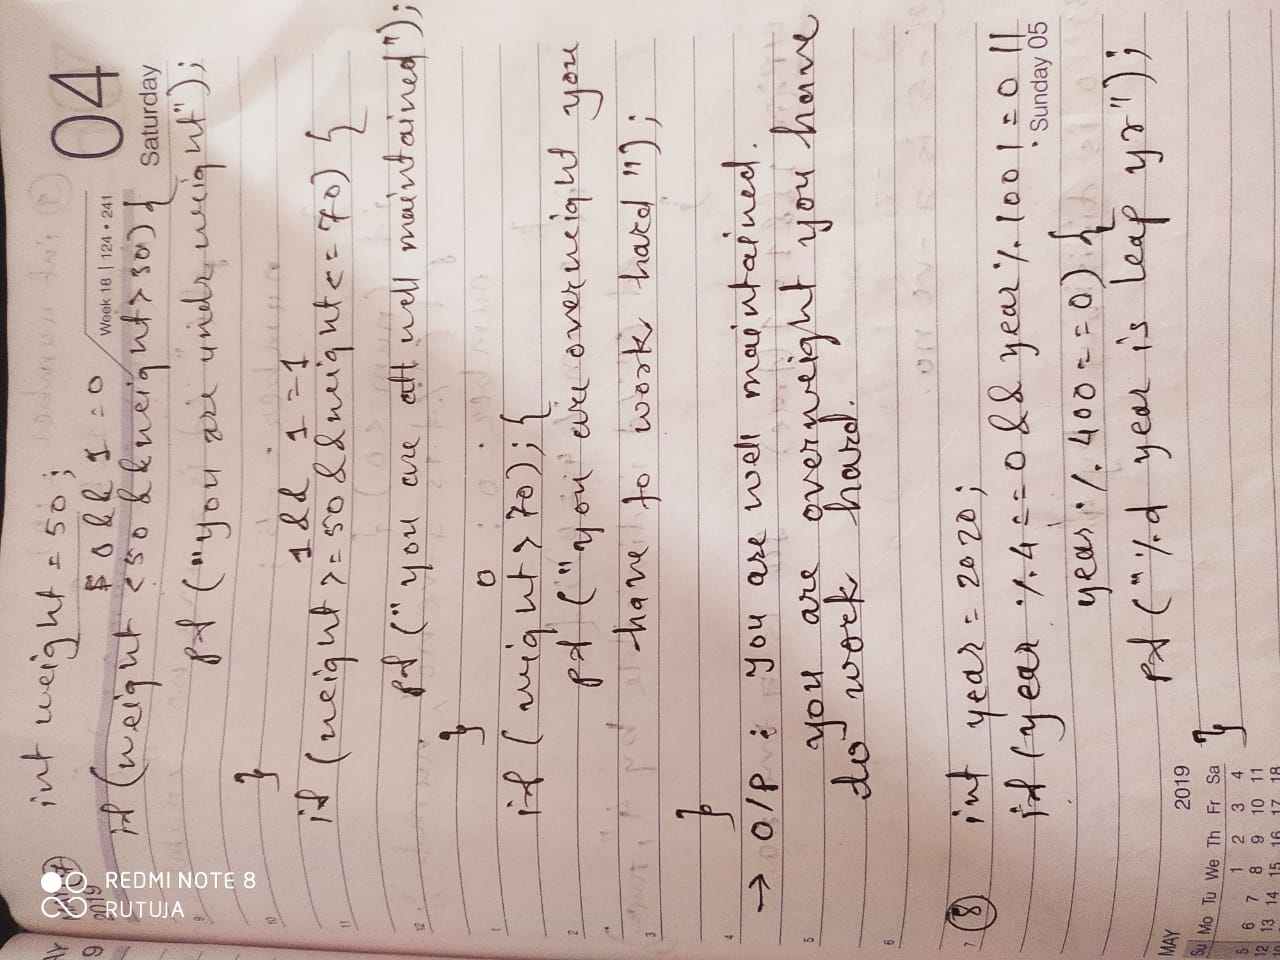 04
Saturday
Week 18 | 124 • 241
2019
int weight = 50;
0 && 1 = 0
if (weight <50 && weight > 30) {
pf ("you are undr weight");
}
1 && 1 = 1
if (weight >= 50 && weight <= 70) {
pf (" you are all well maintained");
}
0
if ( weight > 70); {
pf (" you are overweight you
have to work hard ");
}
→ O/P : you are well maintained.
you are overweight you have
to work hard.
8 int year = 2020;
if (year % 4 == 0 && year % 100 != 0 ||
Sunday 05
year % 400 == 0) {
pf ("%d year is leap yr");
}
9
10
11
12
1
2
3
4
5
6
7
MAY 2019
Su Mo Tu We Th Fr Sa
1 2 3 4
5 6 7 8 9 10 11
12 13 14 15 16 17 18
REDMI NOTE 8
RUTUJA